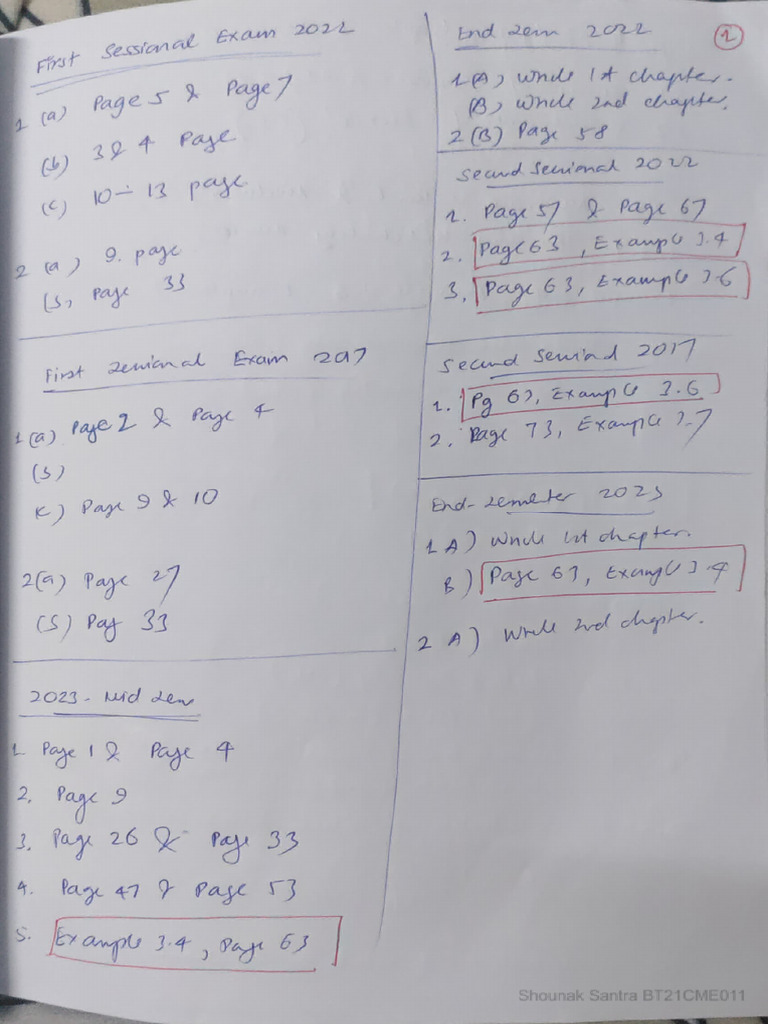 First Sessional Exam 2022
1 (a) Page 5 & Page 7
(b) 3 & 4 Page
(c) 10-13 page
2 (a) 9. page
(b) Page 33
First Sessional Exam 2017
1 (a) Page 2 & Page 4
(b)
(c) Page 9 & 10
2 (a) Page 27
(b) Pag 33
2023 - Mid Sem
1. Page 1 & Page 4
2. Page 9
3. Page 26 & Page 33
4. Page 47 & Page 53
5. Example 3.4, Page 63
End Sem 2022
1 (A) Whole 1st chapter.
(B) Whole 2nd chapter.
2 (B) Page 58
Second Sessional 2022
1. Page 57 & Page 67
2. Page 63, Example 3.4
3. Page 63, Example 3.6
Second Sessional 2017
1. Pg Example 3.6
2. Page 73, Example 3.7
End-Semester 2023
1 A) Whole 1st chapter.
B) Page 63, Example 3.4
2 A) Whole 2nd chapter.
Shounak Santra BT21CME011